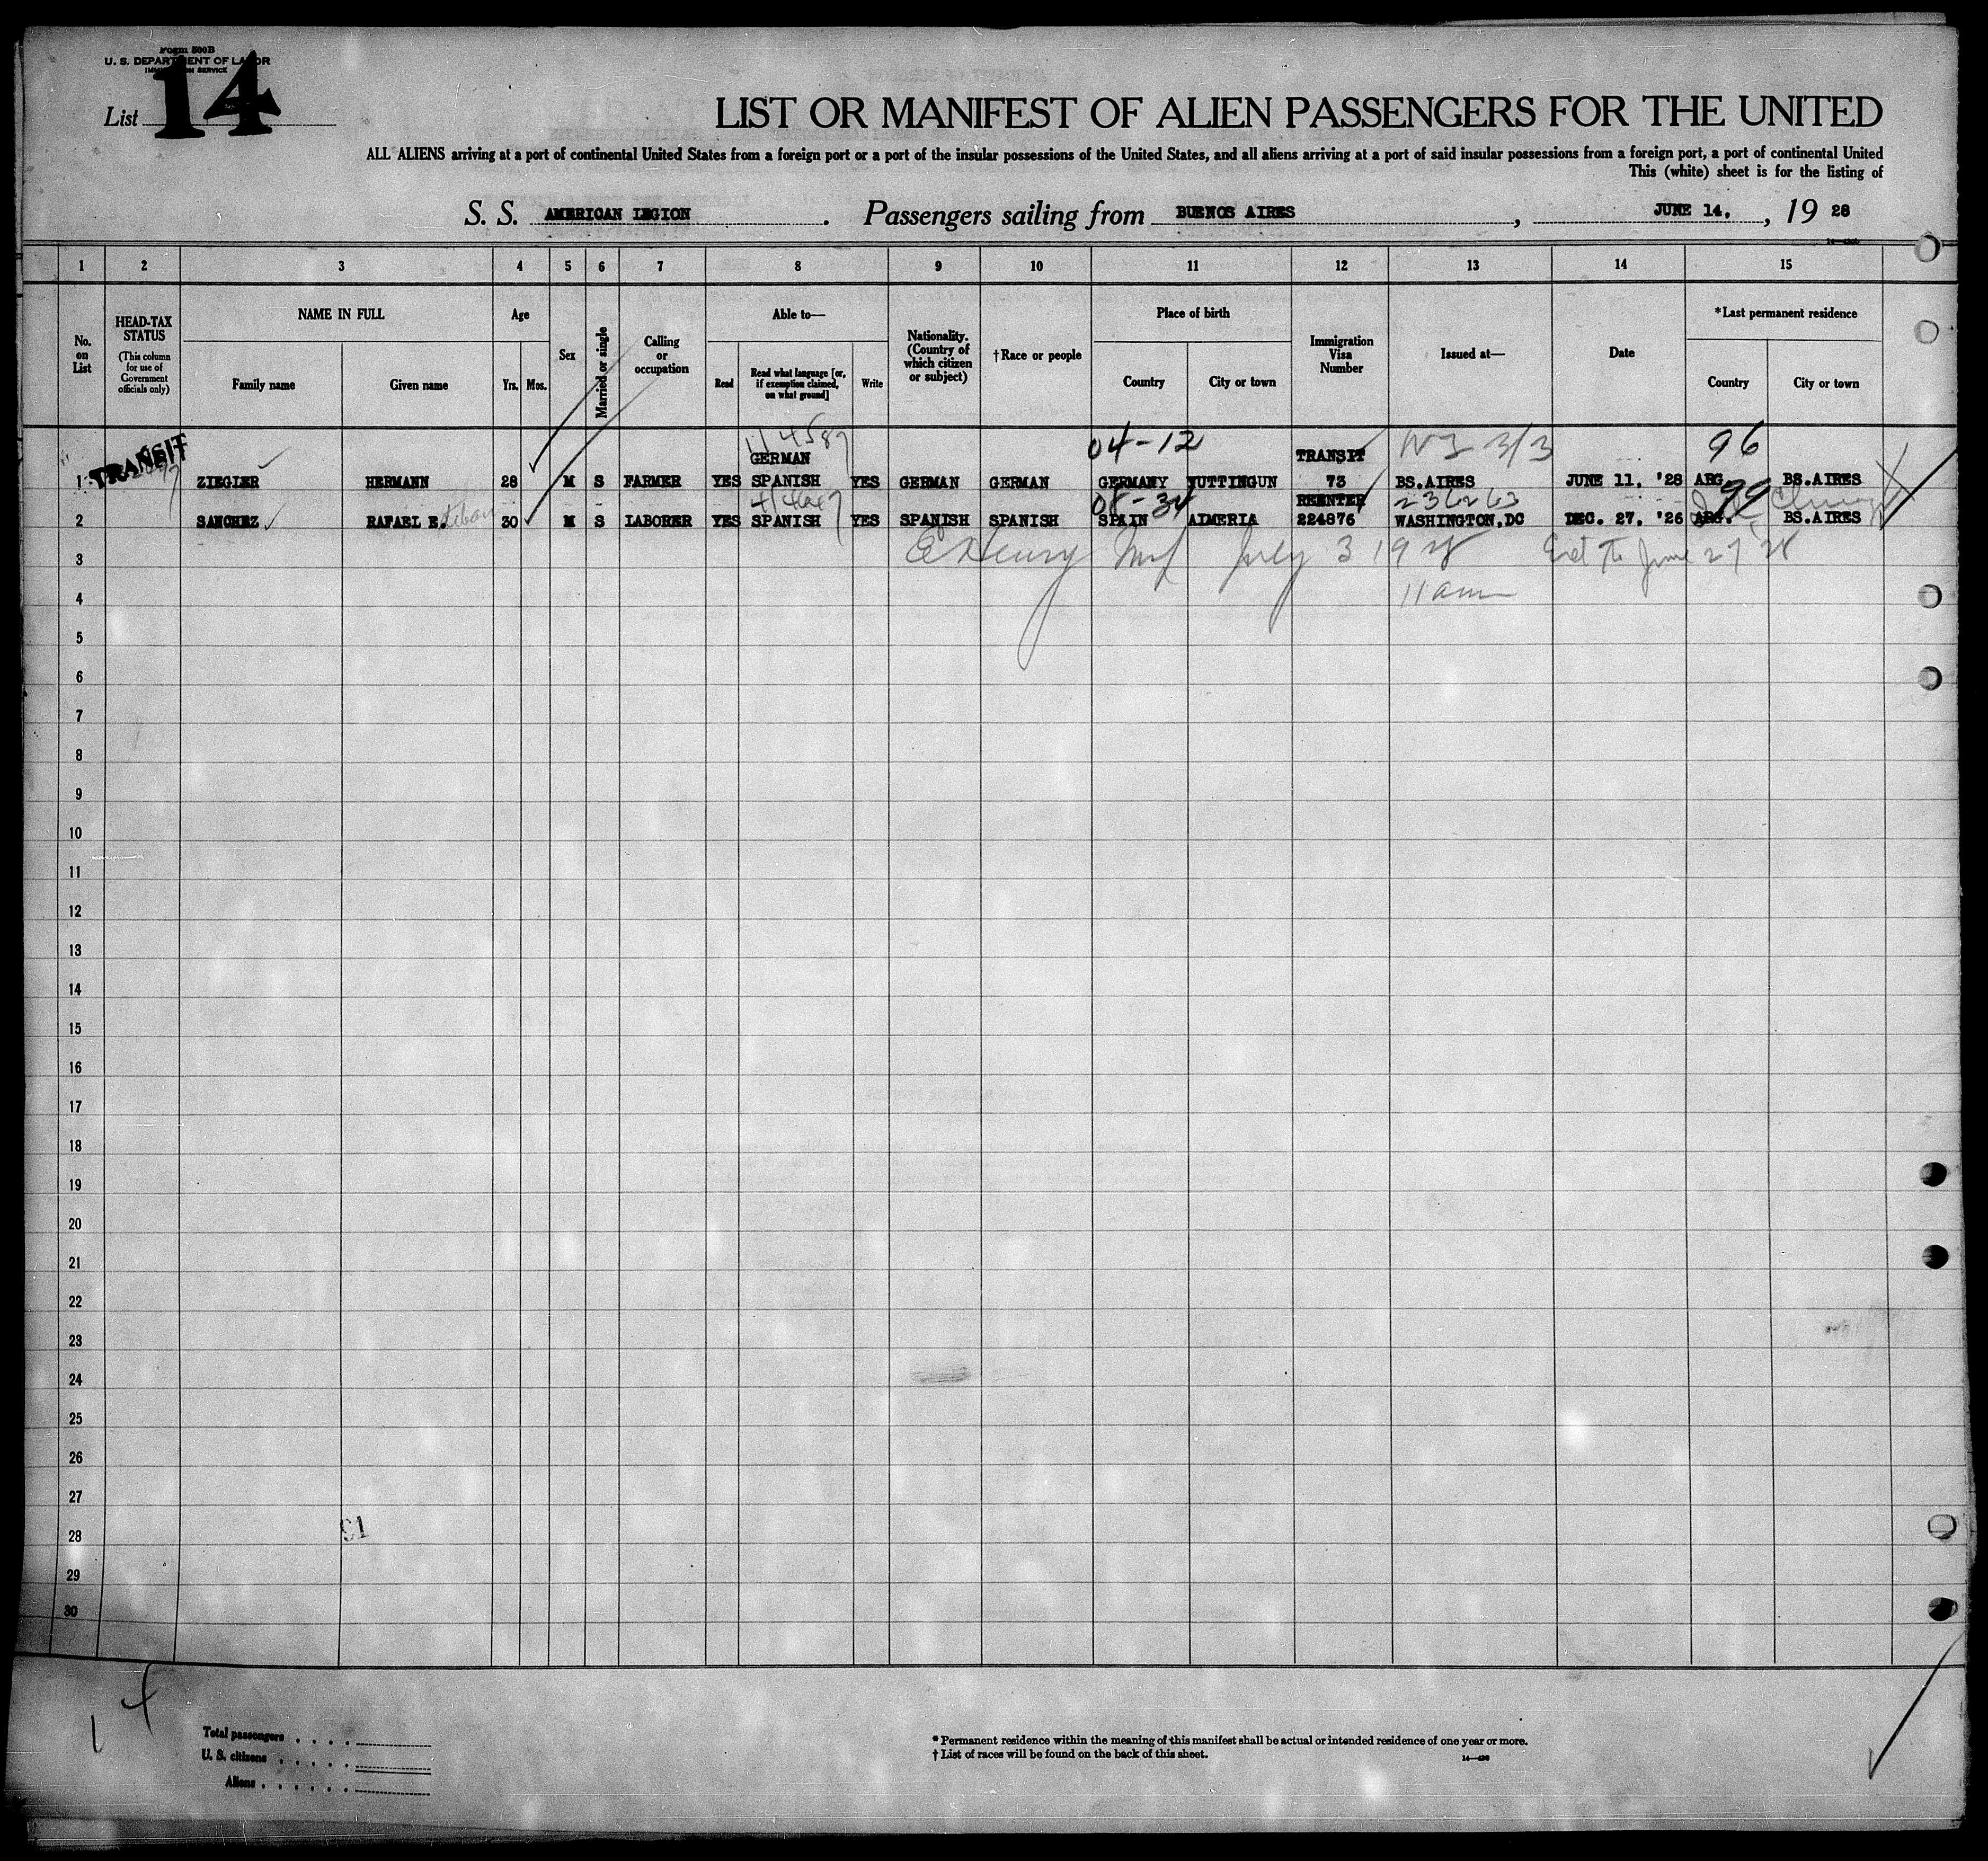 Form 500B
U. S. DEPARTMENT OF LABOR
IMMIGRATION SERVICE
List 14
LIST OR MANIFEST OF ALIEN PASSENGERS FOR THE UNITED
ALL ALIENS arriving at a port of continental United States from a foreign port or a port of the insular possessions of the United States, and all aliens arriving at a port of said insular possessions from a foreign port, a port of continental United
This (white) sheet is for the listing of
S. S. AMERICAN LEGION. Passengers sailing from BUENOS AIRES, JUNE 14, , 19 28
1 2 3 4 5 6 7 8 9 10 11 12 13 14 15
No. on List
HEAD-TAX STATUS
(This column for use of Government officials only)
NAME IN FULL
Family name
Given name
Age
Yrs.
Mos.
Sex
Married or single
Calling or occupation
Able to—
Read
Read what language [or, if exemption claimed, on what ground]
Write
Nationality. (Country of which citizen or subject)
†Race or people
Place of birth
Country
City or town
Immigration Visa Number
Issued at—
Date
*Last permanent residence
Country
City or town
04-12
96
TRANSIT
GERMAN TRANSIT
1 ZIEGLER HERMANN 28 M S FARMER YES SPANISH YES GERMAN GERMAN GERMANY TUTTINGUN 73 BS.AIRES JUNE 11, '28 ARG. BS.AIRES
08-34 REENTER 236263 99
2 SANCHEZ RAFAEL E. 30 M S LABORER YES SPANISH YES SPANISH SPANISH SPAIN ALMERIA 224876 WASHINGTON,DC DEC. 27, '26 ARG. BS.AIRES
3 July 3 19 28 June 27 '28
4 11 am
5
6
7
8
9
10
11
12
13
14
15
16
17
18
19
20
21
22
23
24
25
26
27
28
29
30
Total passengers . . . .
U. S. citizens . . . . .
Aliens . . . . . .
* Permanent residence within the meaning of this manifest shall be actual or intended residence of one year or more.
† List of races will be found on the back of this sheet.